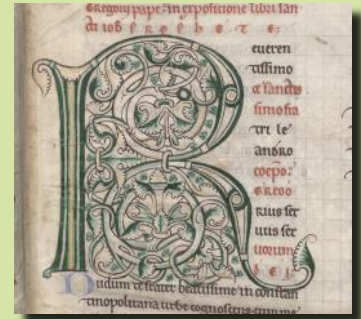 Gregorii pape in expositione libri san
cti iob prophete
R
eueren
tissimo
et sancto
simo fra
tri le
andro
coepo:
GREGO
RIUS ser
uus ser
uorum
dei
Dudum te frater beatissime in constan
tinopolitana urbe cognoscens cum me